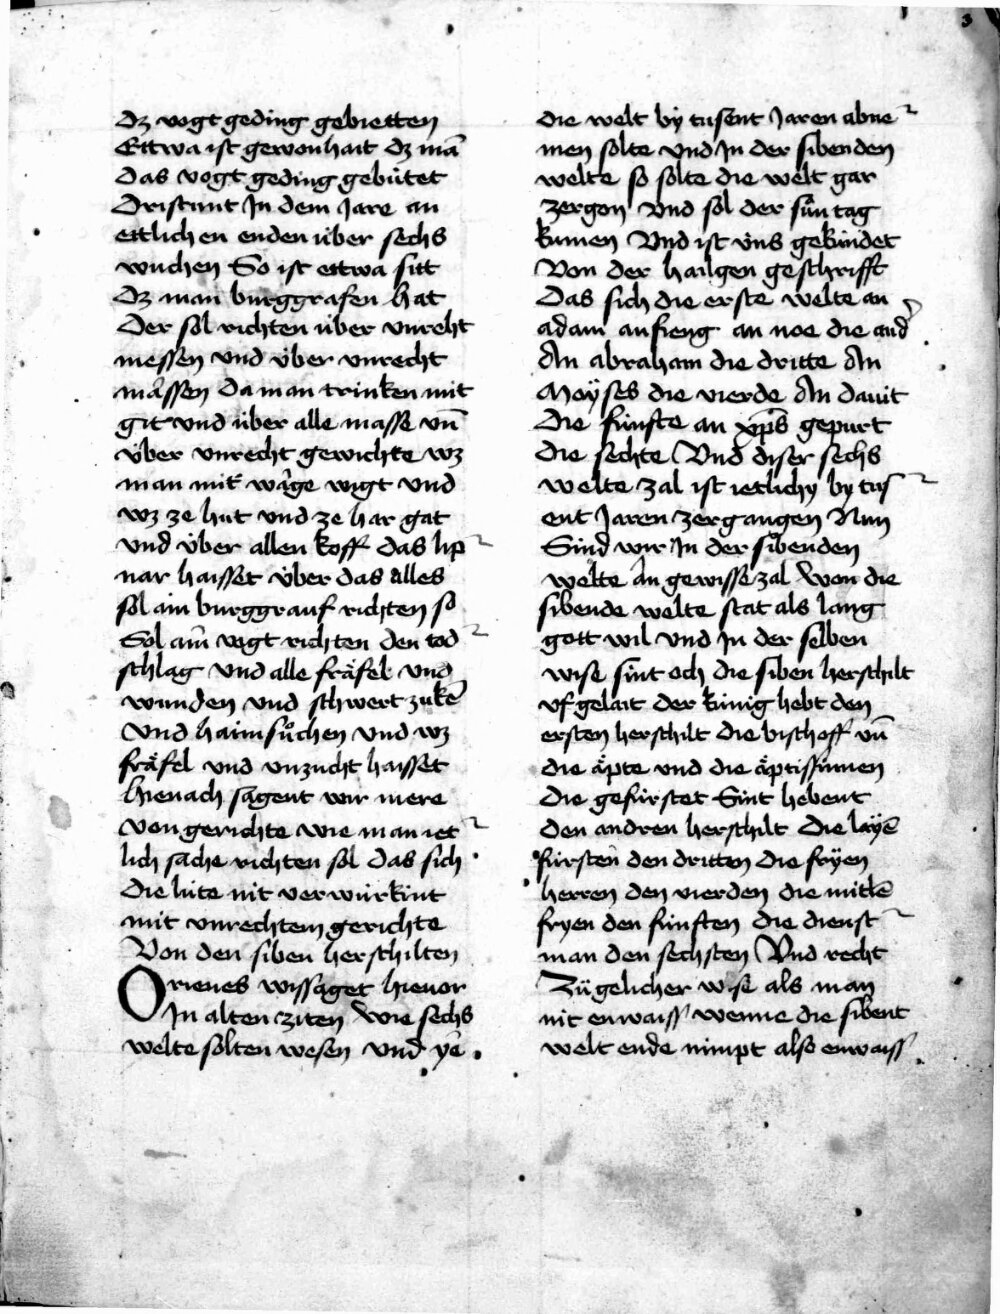 3
dz vogt geding gebietten
Ettwa ist gewonhait dz mā
das vogt geding gebütet
Dristunt In dem Jare an
ettlichen enden über sechs
wuchen So ist ettwa sitt
dz man burggrafen hat
Der sol richten über vnreht
messen vnd über vnrecht
mässen da man trinken mit
git vnd über alle masse vn̄
über vnrecht gewichte wz
man mit wǎge wigt vnd
wz ze hut vnd ze har gat
vnd über allen koff das lip
nar haisset über das alles
sol ain burggrauf richten so
Sol ain vogt richten den tod
schlag vnd alle fräfel vnd
wunden vnd schwert zukē
vnd haimsůchen vnd wz
fräfel vnd vnzucht haisset
Hienach sagent wir mere
von gerichte wie man iet
lich sache richten sol das sich
die lüte nit verwürkint
mit vnrechtem gerichte
Von den siben herschilten
Orienes wissaget hieuor
In alten ziten wie sechs
welte solten wesen vnd ye
die welt by tusent Jaren abne
men solte vnd In der sibenden
welte so solte die welt gar
zergon vnd sol der sůn tag
kumen Vnd ist vns gekündet
Von der hailgen geschrifft
Das sich die erste welte an
adam anfieng an noe die and̕
An abraham die dritte An
Moÿses die vierde An dauit
die fünfte an xp̄s gepurt
die sechte Vnd diser sechs
welte zal ist ietlichy by tus
ent Jaren zergangen Nun
Sind wir In der sibenden
welte ǎn gewisse zal Won die
sibende welte stat als lang
gott wil vnd In der selben
wise sint och die siben herschilt
vf gelait der künig hebt den
ersten herschilt die bischoff vn̄
die äpte vnd die äptissinnen
die gefürstet Sint hebent
den andren herschilt die layē
fürsten den dritten die fryen
herren den vierden die mitlē
fryen den fünften die dienst
man den sechsten Vnd recht
Zügelicher wise als man
nit enwaiss wenne die sibent
welt ende nimpt also enwaiss